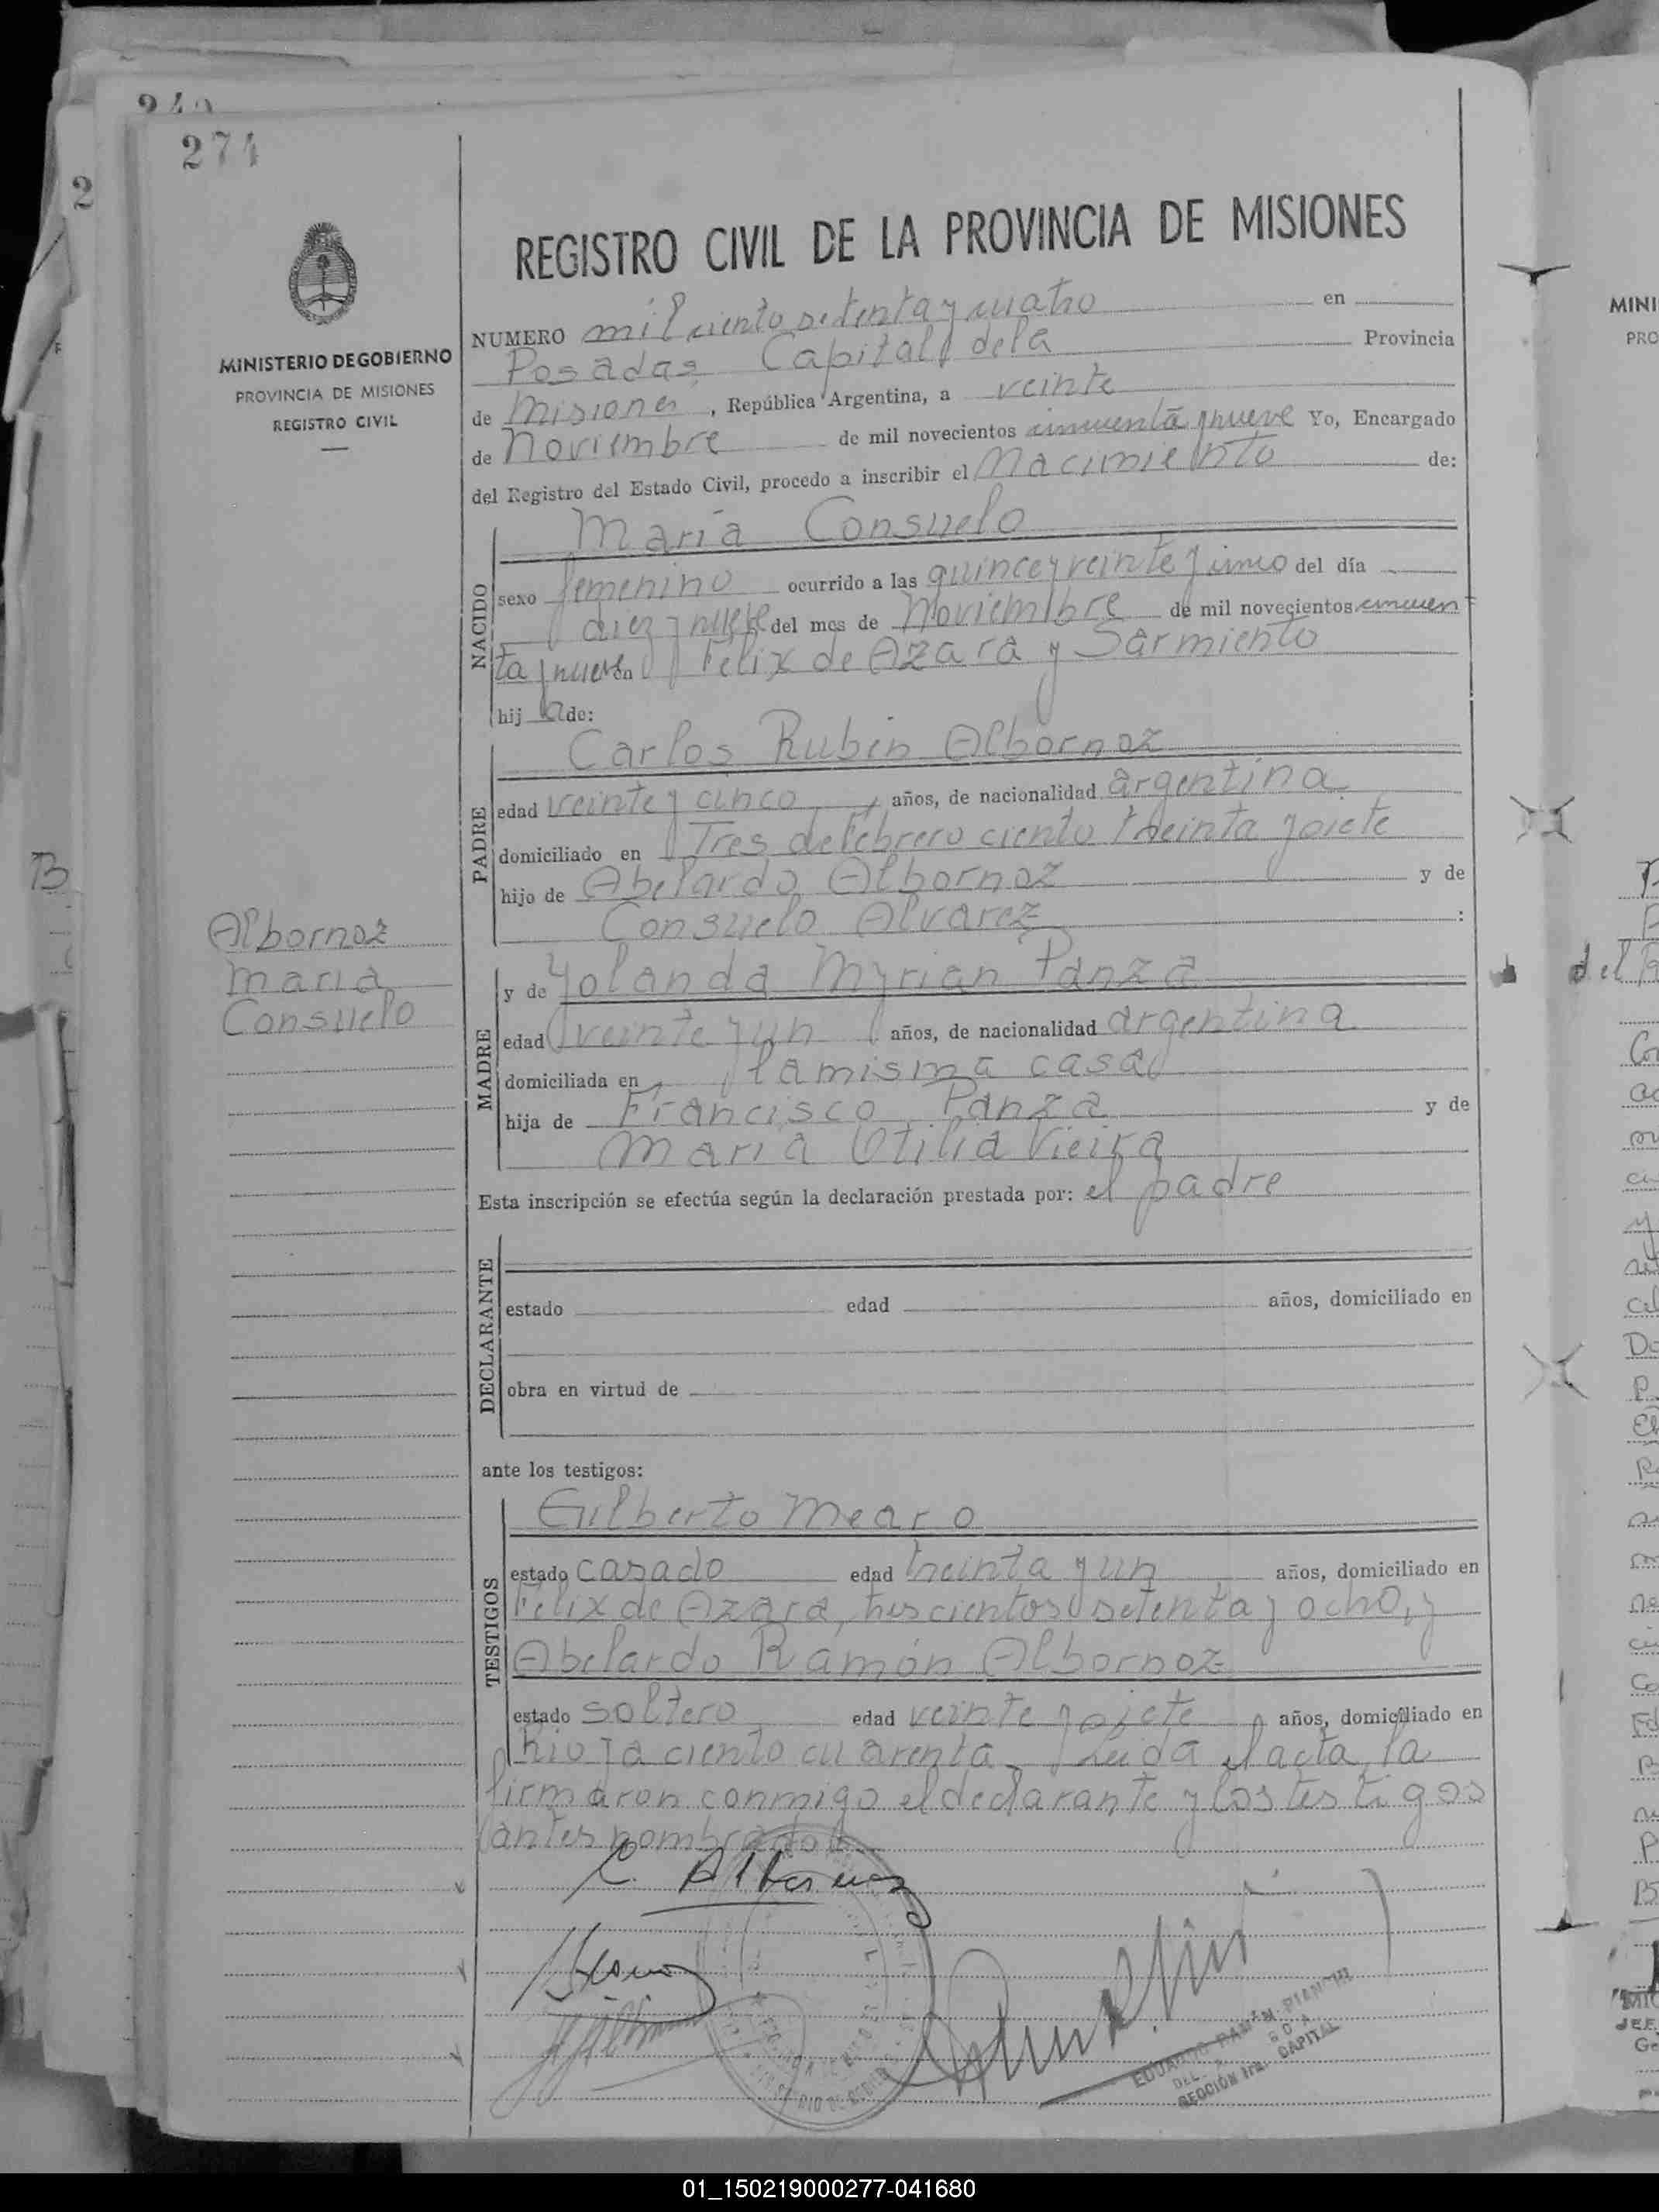 274
MINISTERIO DE GOBIERNO
PROVINCIA DE MISIONES
REGISTRO CIVIL
Albornoz
Maria
Consuelo
REGISTRO CIVIL DE LA PROVINCIA DE MISIONES
NUMERO mil ciento setenta y cuatro en
Posadas Capital de la Provincia
de Misiones, República Argentina, a veinte
de Noviembre de mil novecientos cincuenta y nueve Yo, Encargado
del Registro del Estado Civil, procedo a inscribir el Nacimiento de:
NACIDO
Maria Consuelo
sexo femenino ocurrido a las quince y veinte y cinco del día
diez y nueve del mes de Noviembre de mil novecientos cincuen
ta y nueve en Felix de Azara y Sarmiento
hij a de:
PADRE
Carlos Rubén Albornoz
edad veinte y cinco años, de nacionalidad argentina
domiciliado en Tres de Febrero ciento treinta y siete
hijo de Abelardo Albornoz y de
Consuelo Alvarez :
MADRE
y de Yolanda Myrian Panza
edad veinte y un años, de nacionalidad argentina
domiciliada en la misma casa
hija de Francisco Panza y de
Maria Otilia Vieira
Esta inscripción se efectúa según la declaración prestada por: el padre
DECLARANTE
estado edad años, domiciliado en
obra en virtud de
ante los testigos:
TESTIGOS
Gilberto Mearo
estado casado edad treinta y un años, domiciliado en
Felix de Azara, trescientos setenta y ocho, y
Abelardo Ramón Albornoz
estado soltero edad veinte y siete años, domiciliado en
Rioja ciento cuarenta. Leida el acta, la
firmaron conmigo el declarante y los testigos
antes nombrados
C. Albornoz
SECCIÓN CAPITAL
01_150219000277-041680